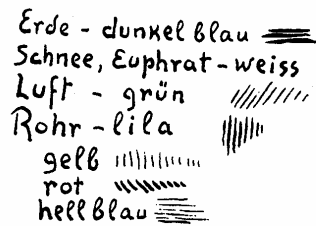 Erde - dunkelblau
Schnee, Euphrat - weiss
Luft - grün
Rohr - lila
gelb
rot
hellblau